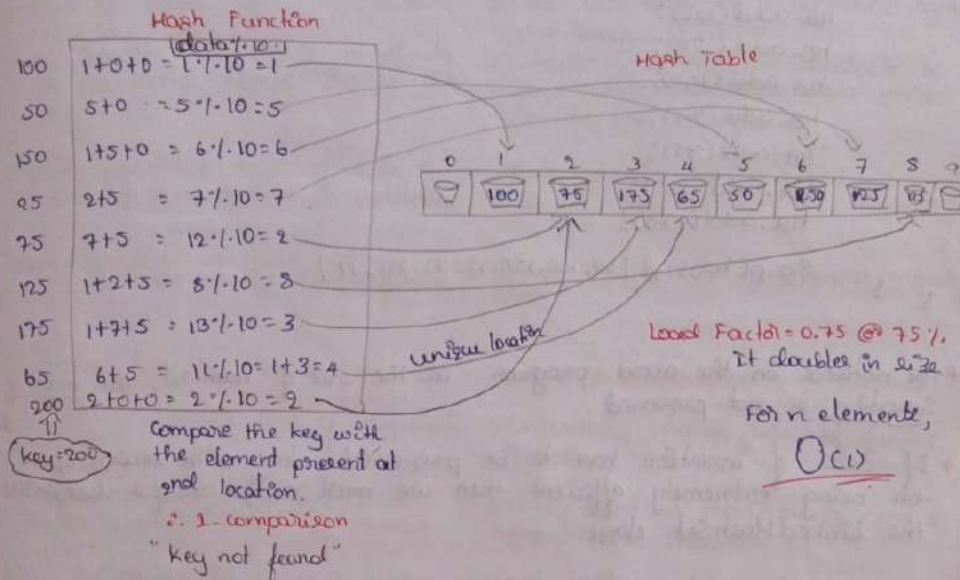 Hash Function
data%10
100 1+0+0 = 1%10 = 1
50 5+0 = 5%10 = 5
150 1+5+0 = 6%10 = 6
25 2+5 = 7%10 = 7
75 7+5 = 12%10 = 2
125 1+2+5 = 8%10 = 8
175 1+7+5 = 13%10 = 3
65 6+5 = 11%10 = 1+3 = 4
200 2+0+0 = 2%10 = 2
key=200
Compare the key with
the element present at
2nd location.
∴ 1-comparison
"Key not found"
Hash Table
0 1 2 3 4 5 6 7 8 9
100 75 175 65 50
unique location
Load Factor = 0.75 @ 75%.
It doubles in size
For n elements,
O(1)